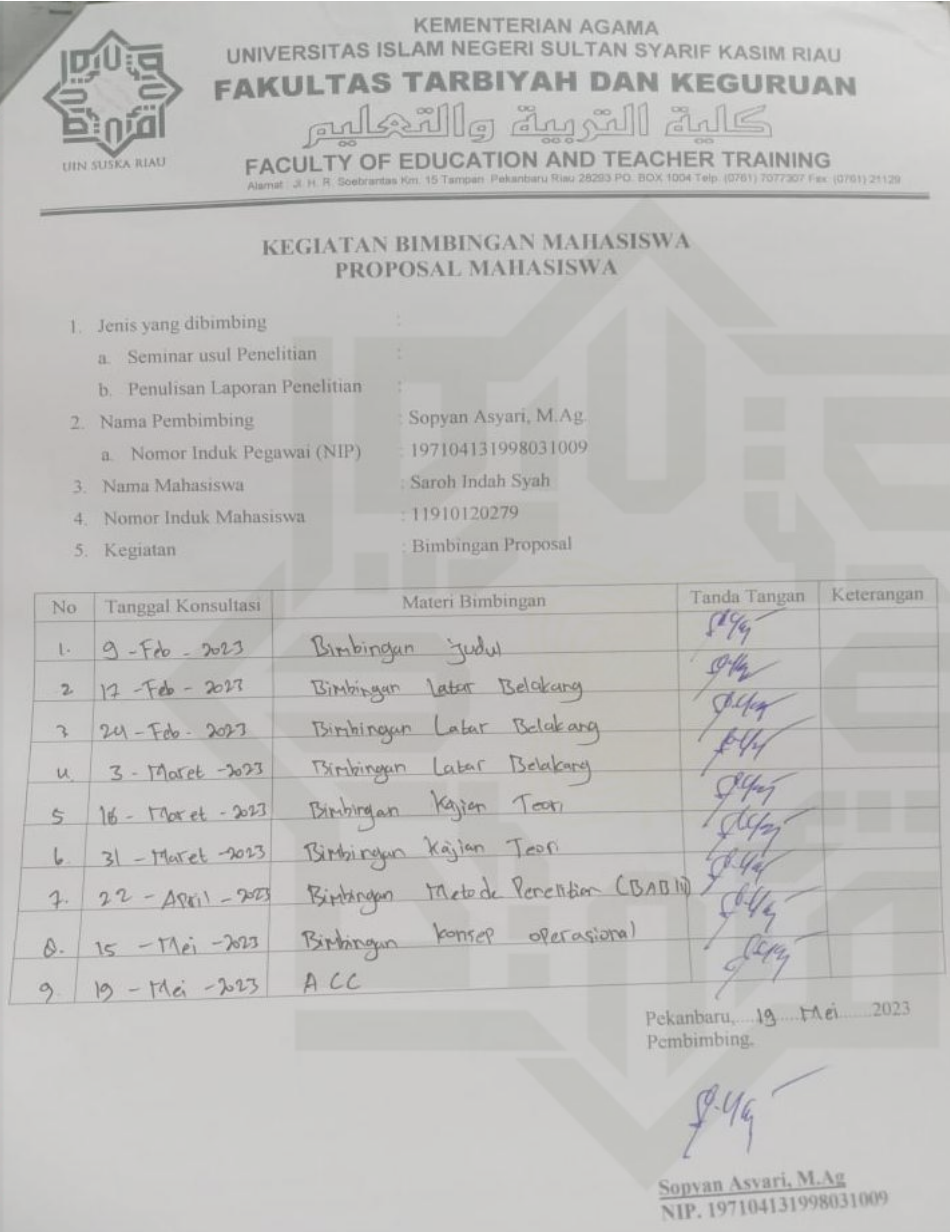 KEMENTERIAN AGAMA
UNIVERSITAS ISLAM NEGERI SULTAN SYARIF KASIM RIAU
FAKULTAS TARBIYAH DAN KEGURUAN
كلية التربية والتعليم
FACULTY OF EDUCATION AND TEACHER TRAINING
Alamat : Jl. H. R. Soebrantas Km. 15 Tampan Pekanbaru Riau 28293 PO. BOX 1004 Telp. (0761) 7077307 Fax. (0761) 21129
UIN SUSKA RIAU
KEGIATAN BIMBINGAN MAHASISWA
PROPOSAL MAHASISWA
1. Jenis yang dibimbing :
a. Seminar usul Penelitian :
b. Penulisan Laporan Penelitian :
2. Nama Pembimbing : Sopyan Asyari, M.Ag.
a. Nomor Induk Pegawai (NIP) : 197104131998031009
3. Nama Mahasiswa : Saroh Indah Syah
4. Nomor Induk Mahasiswa : 11910120279
5. Kegiatan : Bimbingan Proposal
No Tanggal Konsultasi Materi Bimbingan Tanda Tangan Keterangan
1. 9 - Feb - 2023 Bimbingan judul
2 17 - Feb - 2023 Bimbingan Latar Belakang
3 24 - Feb - 2023 Bimbingan Latar Belakang
4 3 - Maret - 2023 Bimbingan Latar Belakang
5 16 - Maret - 2023 Bimbingan Kajian Teori
6. 31 - Maret - 2023 Bimbingan Kajian Teori
7. 22 - April - 2023 Bimbingan Metode Penelitian
8. 15 - Mei - 2023 Bimbingan konsep operasional
9. 19 - Mei - 2023 ACC
Pekanbaru,....19.....Mei.......2023
Pembimbing,
Sopyan Asyari, M.Ag
NIP. 197104131998031009